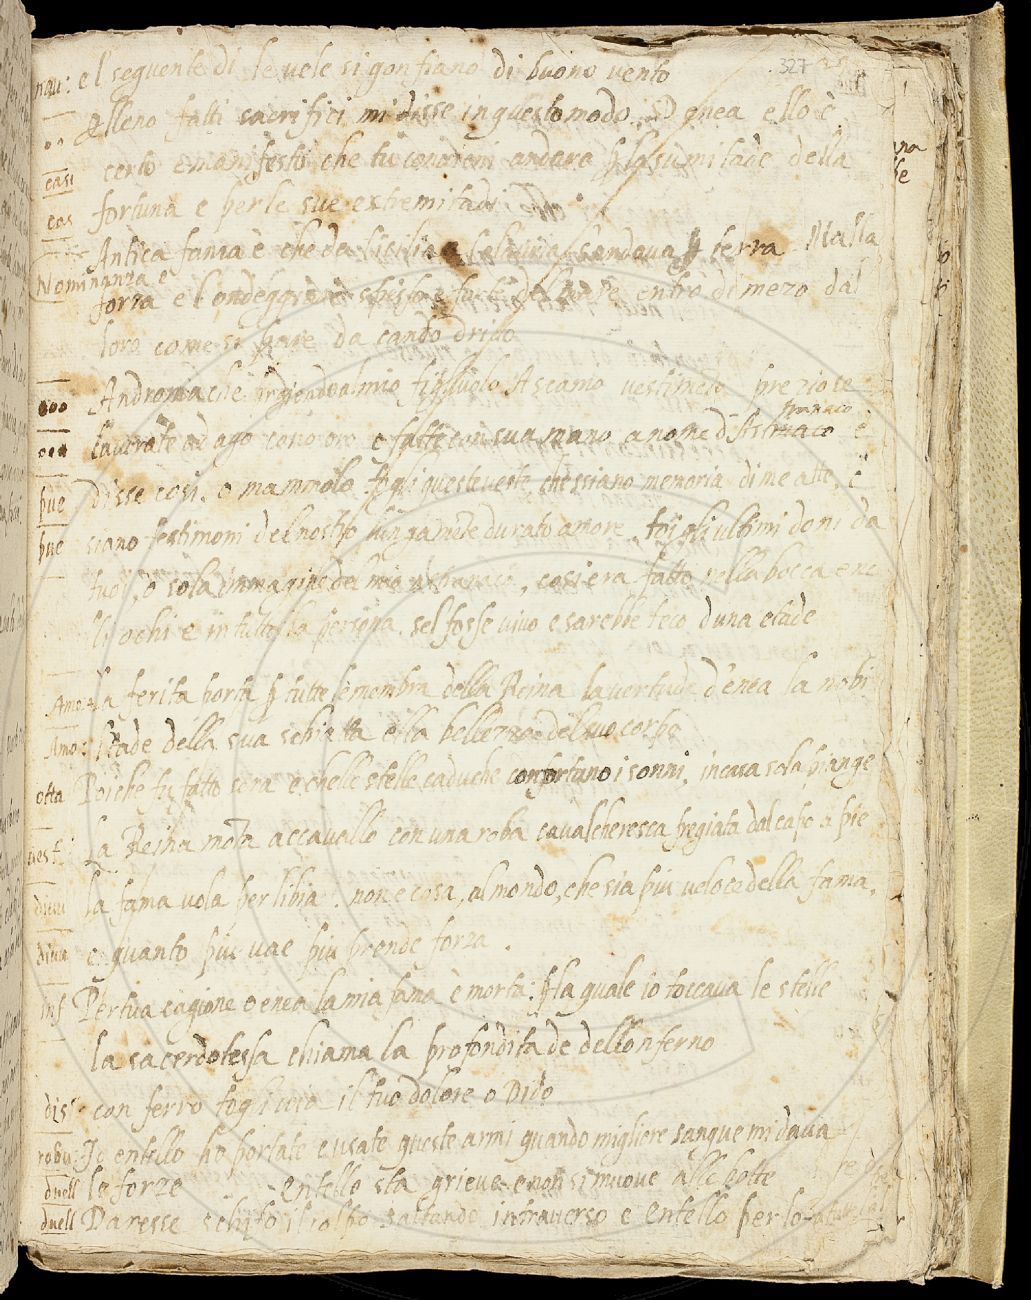 327
nau: el seguente di le vele si gonfiano di buono vento
Elleno fatti sacrifici mi disse in questo modo. O enea ello è
casi certo e manifesto che tu conviemi andare p la sumitade della
cas fortuna e per le sue extremitadi
Antica fama è che da Sicilia a s'andava p terra Ma la
Nominanza e
forza e l'ondeggiare spesso entro di mezo dal
loro come si pare da canto dritto
Andromache al mio figliuolo Ascanio vestimenti preziose
franaco
lavorate ad ago con oro e fatte con sua mano a nome d' e
pue disse così. o mammolo togli queste veste che siano memoria di me a te, e
pue siano testimoni del nostro lungamente durato amore, toi gli ultimi doni da
tuoi, o sola immagine del mio, così era fatto nella bocca e ne
li ochi e in tutta la persona. sel fosse vivo e sarebbe teco d una etade
Amo: La ferita porta p tutte le membra della Reina la vertude d'enea la nobi
Amo: litade della sua schiatta e la bellezza del suo corpo
otta Poiche fu fatto sera e che le stelle caduche confortano i sonni, in casa sola piange
vest: La Reina monta a ccavallo con una roba cavalcheresca fregiata dal capo a pie
la fama vola per libia. non è cosa, al mondo, che sia piu veloce della fama,
e quanto piu vae piu prende forza.
inf Per tua cagione o enea la mia fama è morta. p la quale io toccava le stelle
la sacerdotessa chiama la profonditade dell onferno
disp con ferro togli via il tuo dolore o Dido
robu: Io entello ho portate e usate queste armi quando migliere sangue mi dava
duell le forze Entello sta grieve e non si muove alle botte
duell Daresse schifò il colpo saltando intraverso e Entello per lo